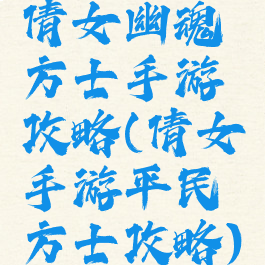 倩女幽魂
方士手游
攻略(倩女
手游平民
方士攻略)